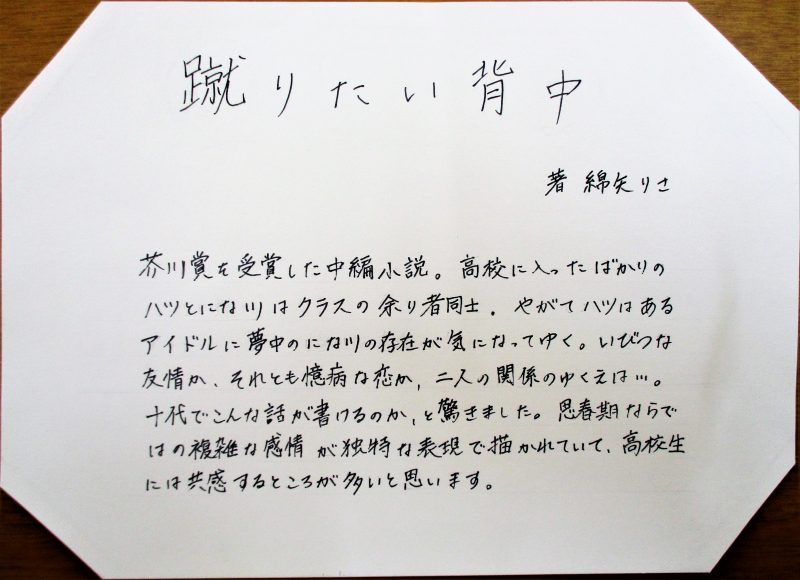 蹴りたい背中
著 綿矢りさ
芥川賞を受賞した中編小説。高校に入ったばかりの
ハツとにな川はクラスの余り者同士。やがてハツはある
アイドルに夢中のにな川の存在が気になってゆく。いびつな
友情か、それとも憶病な恋か、二人の関係のゆくえは…。
十代でこんな話が書けるのか、と驚きました。思春期ならで
はの複雑な感情が独特な表現で描かれていて、高校生
には共感するところが多いと思います。